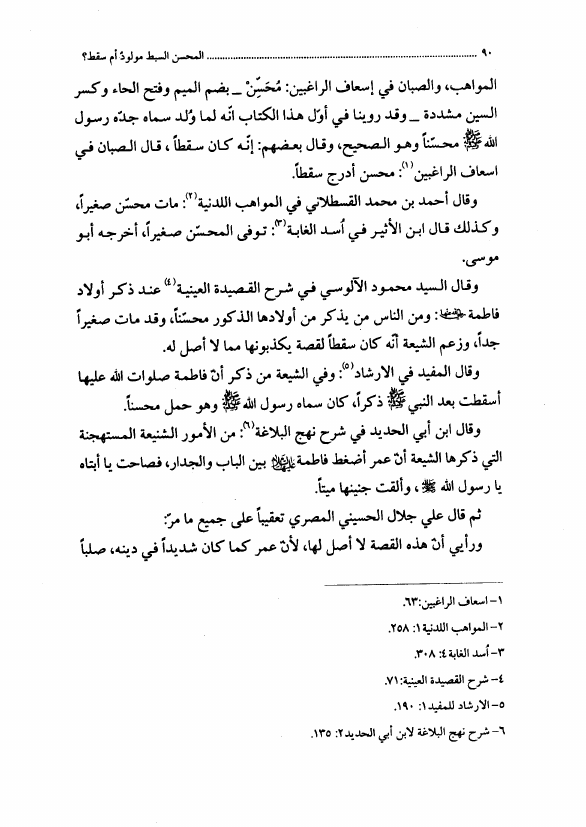 ٩٠ ........................................ المحسن السبط مولودٌ أم سقط؟
المواهب، والصبان في إسعاف الراغبين: مُحَسِّنْ ـ بضم الميم وفتح الحاء وكسر
السين مشددة ـ وقد روينا في أوّل هذا الكتاب انّه لما وُلد سماه جدّه رسول
الله ﷺ محسّناً وهو الصحيح، وقال بعضهم: إنّه كان سقطاً ، قال الصبان في
اسعاف الراغبين(١): محسن أدرج سقطاً.
وقال أحمد بن محمد القسطلاني في المواهب اللدنية(٢): مات محسّن صغيراً،
وكذلك قال ابن الأثير في اُسد الغابة(٣): توفى المحسّن صغيراً، أخرجه أبو
موسى.
وقال السيد محمود الآلوسي في شرح القصيدة العينية(٤) عند ذكر أولاد
فاطمة: ومن الناس من يذكر من أولادها الذكور محسّناً، وقد مات صغيراً
جداً، وزعم الشيعة أنّه كان سقطاً لقصة يكذبونها مما لا أصل له.
وقال المفيد في الارشاد(٥): وفي الشيعة من ذكر أنّ فاطمة صلوات الله عليها
أسقطت بعد النبي ﷺ ذكراً، كان سماه رسول الله ﷺ وهو حمل محسناً.
وقال ابن أبي الحديد في شرح نهج البلاغة(٦): من الأمور الشنيعة المستهجنة
التي ذكرها الشيعة أنّ عمر أضغط فاطمة بين الباب والجدار، فصاحت يا أبتاه
يا رسول الله ﷺ ، وألقت جنينها ميتاً.
ثم قال علي جلال الحسيني المصري تعقيباً على جميع ما مرّ:
ورأيي أنّ هذه القصة لا أصل لها، لأنّ عمر كما كان شديداً في دينه، صلباً
١- اسعاف الراغبين:٦٣.
٢- المواهب اللدنية١: ٢٥٨.
٣- اُسد الغابة٤: ٣٠٨.
٤- شرح القصيدة العينية:٧١.
٥- الارشاد للمفيد١: ١٩٠.
٦- شرح نهج البلاغة لابن أبي الحديد٢: ١٣٥.